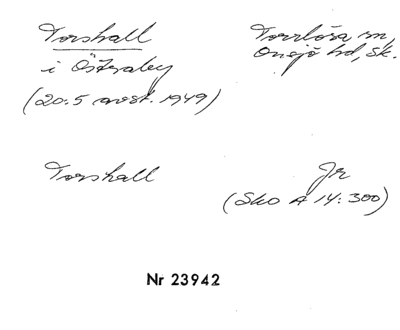 Torshall
Torrlösa sn,
i Österaley
Onsjö hd, Sk.
(20.5 avst. 1949)
Torshall
Jr
(Sko A 14:300)
Nr 23942